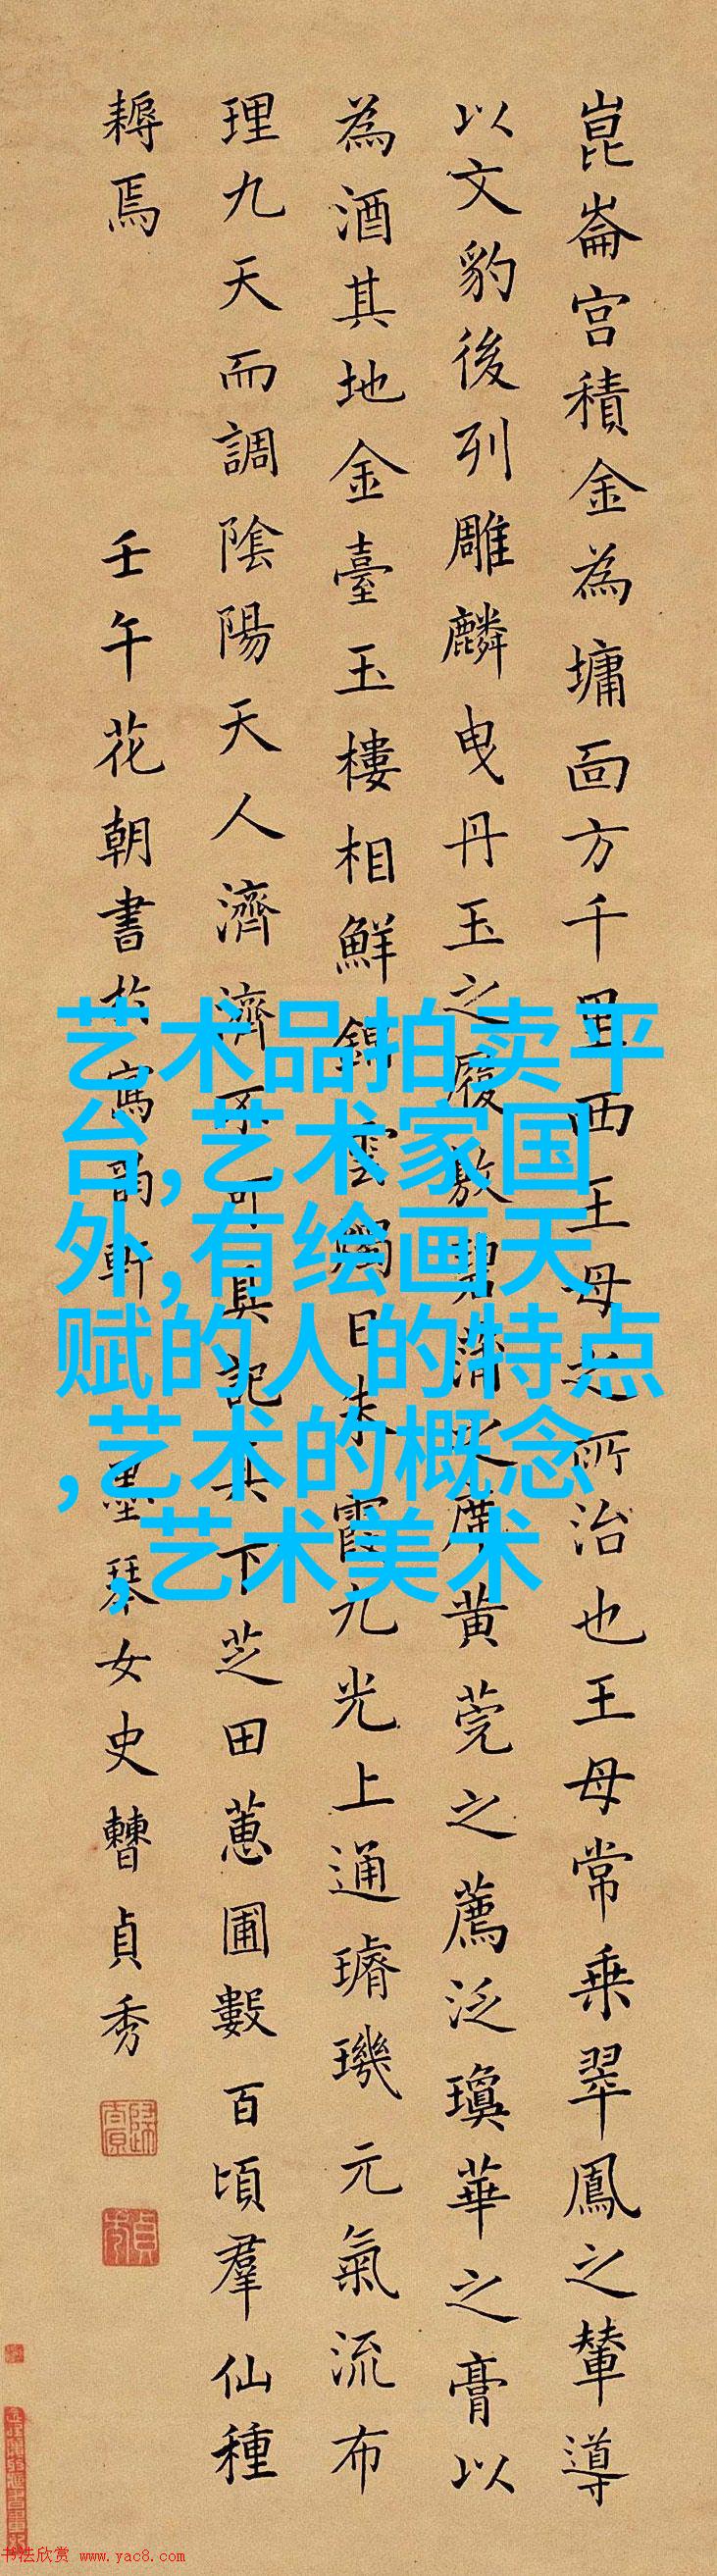 崑崙宮積金為墉面方千里西王母之所治也王母常乘翠鳳之輦導
以文豹後列雕麟曳丹玉之履敷碧蒲之席黄莞之薦泛瓊華之膏以
為酒其地金臺玉樓相鮮錦雲燭日朱霞九光上通璿璣元氣流布
理九天而調陰陽天人濟濟不可具記其下芝田蕙圃數百頃羣仙種
耨焉
壬午花朝書於寫韵軒墨琴女史曹貞秀
艺术品拍卖平
台,艺术家国
外,有绘画天
赋的人的特点
,艺术的概念
,艺术美术
书法欣赏 www.yac8.com